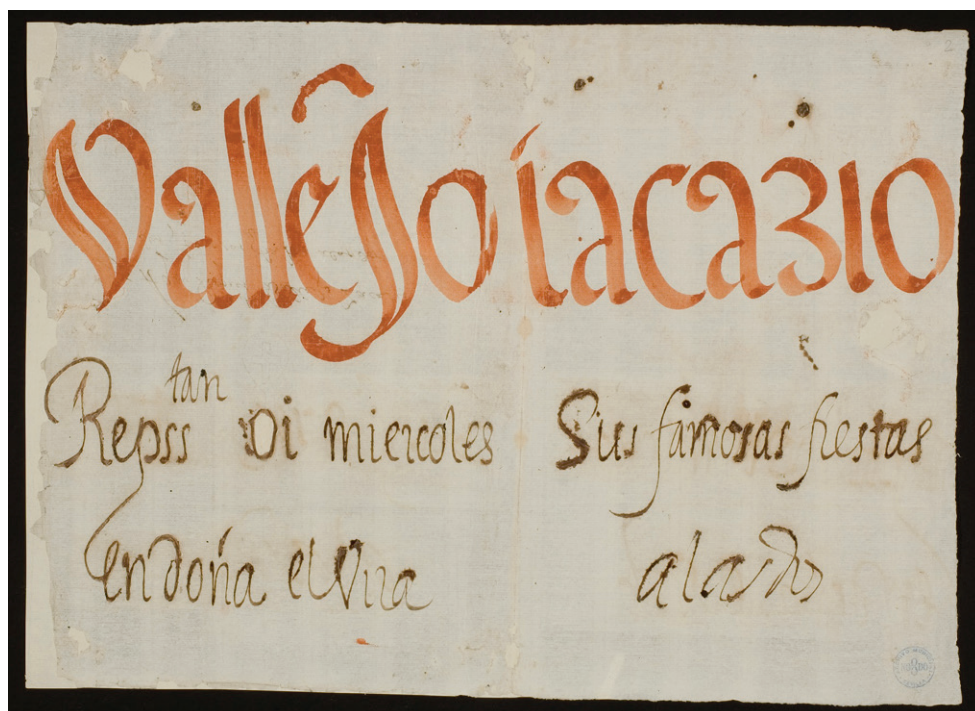 Vallejo i acazio
Repss^tan oi miercoles Sus famosas fiestas
en doña elvira a las dos